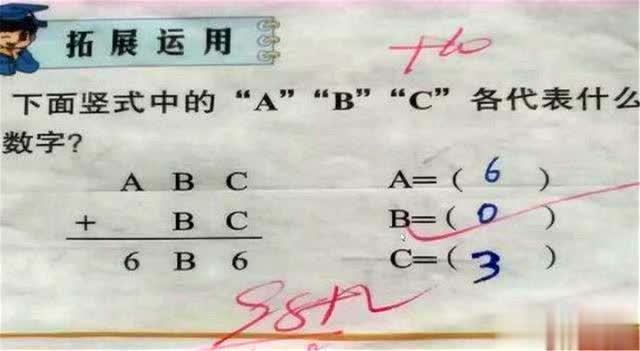 拓展运用
+10
下面竖式中的“A”“B”“C”各代表什么
数字?
A B C A=( 6 )
+ B C B=( 0 )
6 B 6 C=( 3 )
98+2